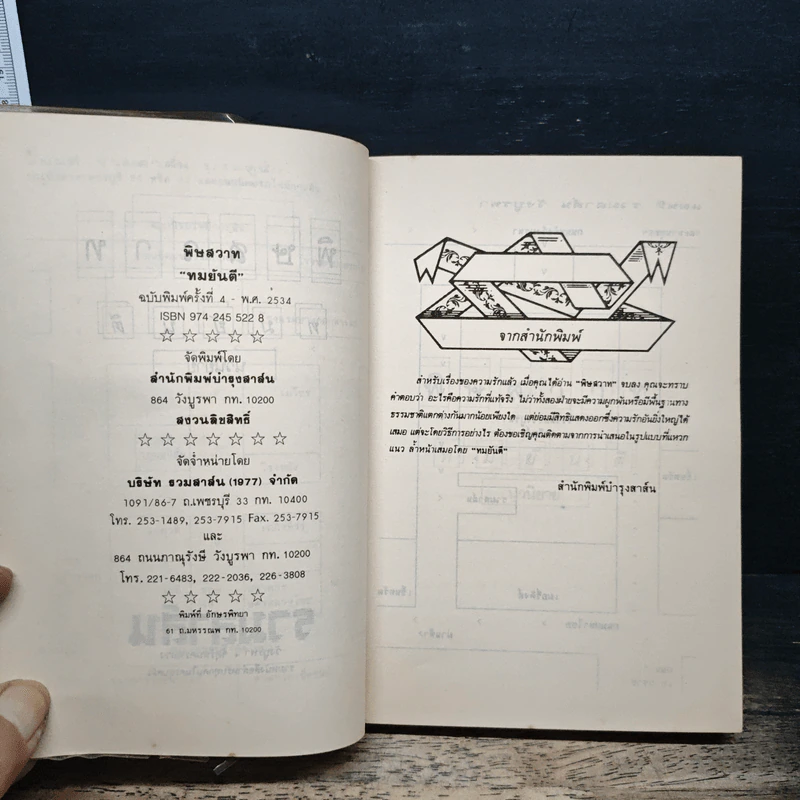 พิษสวาท
"ทมยันตี"
ฉบับพิมพ์ครั้งที่ 4 - พ.ศ. 2534
ISBN 974 245 522 8
☆ ☆ ☆ ☆ ☆
จัดพิมพ์โดย
สำนักพิมพ์บำรุงสาส์น
864 วังบูรพา กท. 10200
สงวนลิขสิทธิ์
☆ ☆ ☆ ☆ ☆ ☆ ☆
จัดจำหน่ายโดย
บริษัท รวมสาส์น (1977) จำกัด
1091/86-7 ถ.เพชรบุรี 33 กท. 10400
โทร. 253-1489, 253-7915 Fax. 253-7915
และ
864 ถนนภาณุรังษี วังบูรพา กท. 10200
โทร. 221-6483, 222-2036, 226-3808
☆ ☆ ☆ ☆ ☆
พิมพ์ที่ อักษรพิทยา
61 ถ.มหรรณพ กท. 10200
จากสำนักพิมพ์
สำหรับเรื่องของความรักแล้ว เมื่อคุณได้อ่าน "พิษสวาท" จบลง คุณจะทราบ
คำตอบว่า อะไรคือความรักที่แท้จริง ไม่ว่าทั้งสองฝ่ายจะมีความผูกพันหรือมีพื้นฐานทาง
ธรรมชาติแตกต่างกันมากน้อยเพียงใด แต่ย่อมมีสิทธิแสดงออกซึ่งความรักอันยิ่งใหญ่ได้
เสมอ แต่จะโดยวิธีการอย่างไร ต้องขอเชิญคุณติดตามจากการนำเสนอในรูปแบบที่แหวก
แนว ล้ำหน้าเสมอโดย "ทมยันตี"
สำนักพิมพ์บำรุงสาส์น